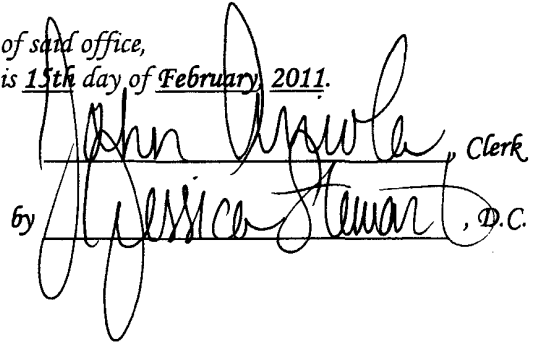 of said office,
is 15th day of February, 2011.
John , Clerk
by Jessica Stewart, D.C.